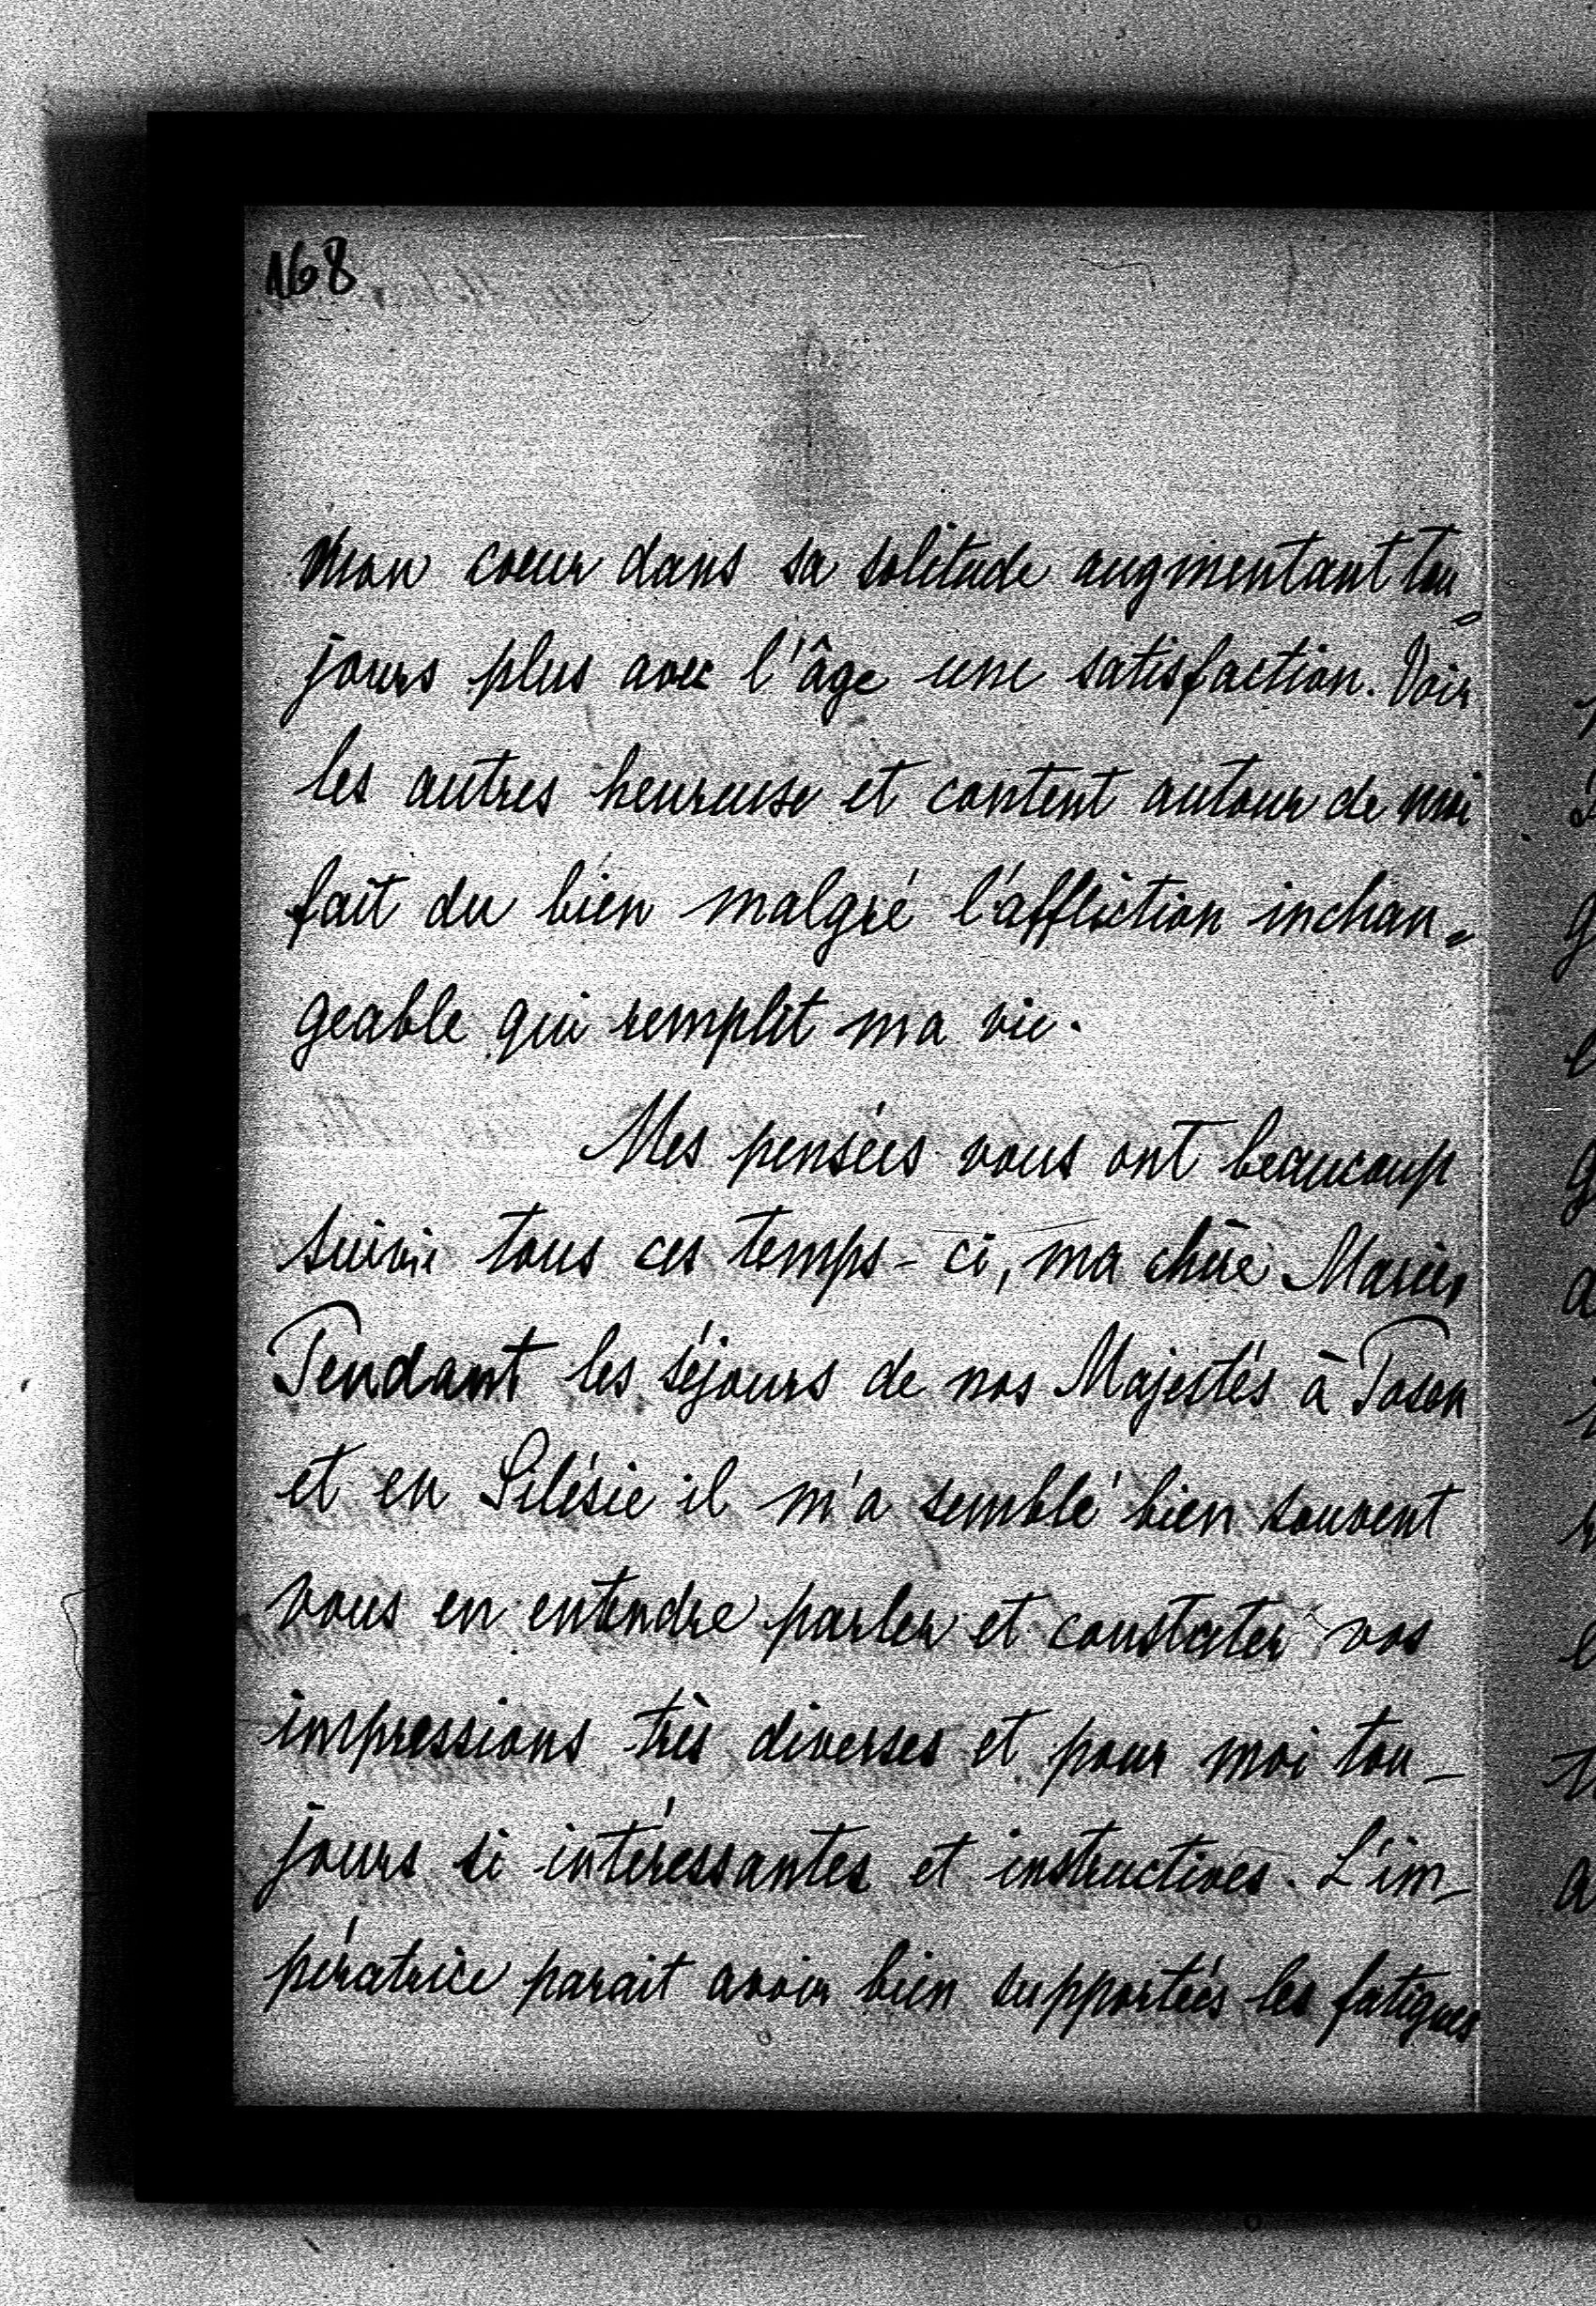 168
mon coeur dans sa solitude augmentant tou=
jours plus avec l'âge une satisfaction. Voir
les autres heureuse et content autour de moi
fait du bien malgré l'affliction inchan=
geable qui remplit ma vie.
Mes pensées vous ont beaucoup
suivie tous ces temps-ci, ma chère Marie,
Pendant les séjours de nos Majestés à Posen
et en Silésie il m'a semblé bien souvent
vous en entendre parler et constater vos
impressions très diverses et pour moi tou-
jours si intéressantes et instructives. L'im-
pératrice parait avoir bien supportées les fatigues